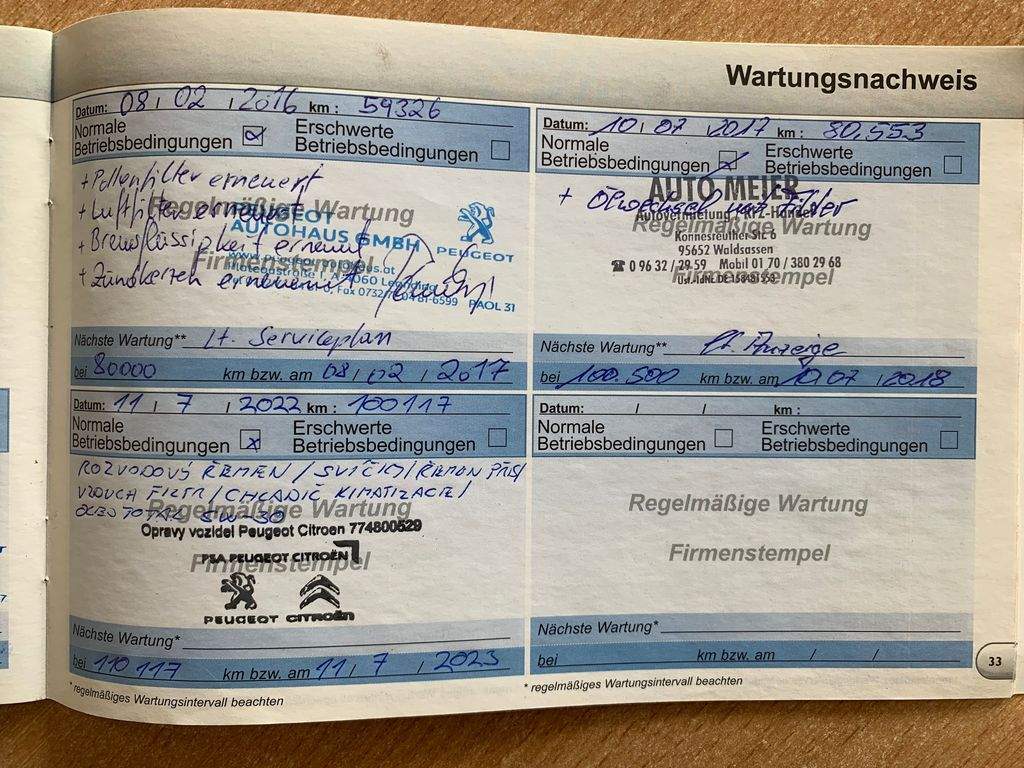 Wartungsnachweis
Datum: 08 / 02 / 2016 km : 59326
Normale Betriebsbedingungen
Erschwerte Betriebsbedingungen
+ Pollenfilter erneuert
+ Luftfilter erneuert
+ Bremsflüssigkeit erneuert
+ Zündkerzen erneuert
Regelmäßige Wartung
Firmenstempel
PEUGEOT
AUTOHAUS GMBH
PEUGEOT
PAOL 31
Nächste Wartung** Lt. Serviceplan
bei 80000 km bzw. am 08 / 02 / 2017
Datum: 10 / 07 / 2017 km : 80.553
Normale Betriebsbedingungen
Erschwerte Betriebsbedingungen
AUTO MEIER
+ Ölwechsel
Autovermietung - KFZ-Handel
Regelmäßige Wartung
Konnesreuther Str. 6
95652 Waldsassen
Mobil 01 70 / 380 29 68
Firmenstempel
Nächste Wartung** lt. Anzeige
bei 100.500 km bzw. am 10 / 07 / 2018
Datum: 11 / 7 / 2022 km : 100117
Normale Betriebsbedingungen
Erschwerte Betriebsbedingungen
ROZVODOVÝ ŘEMEN / SVÍČKY /
Regelmäßige Wartung
5W-30
Opravy vozidel Peugeot Citroen 774800529
PSA PEUGEOT CITROËN
Firmenstempel
PEUGEOT CITROËN
Nächste Wartung*
bei 110 117 km bzw. am 11 / 7 / 2023
* regelmäßiges Wartungsintervall beachten
Datum: / / km :
Normale Betriebsbedingungen
Erschwerte Betriebsbedingungen
Regelmäßige Wartung
Firmenstempel
Nächste Wartung*
bei km bzw. am / /
* regelmäßiges Wartungsintervall beachten
33